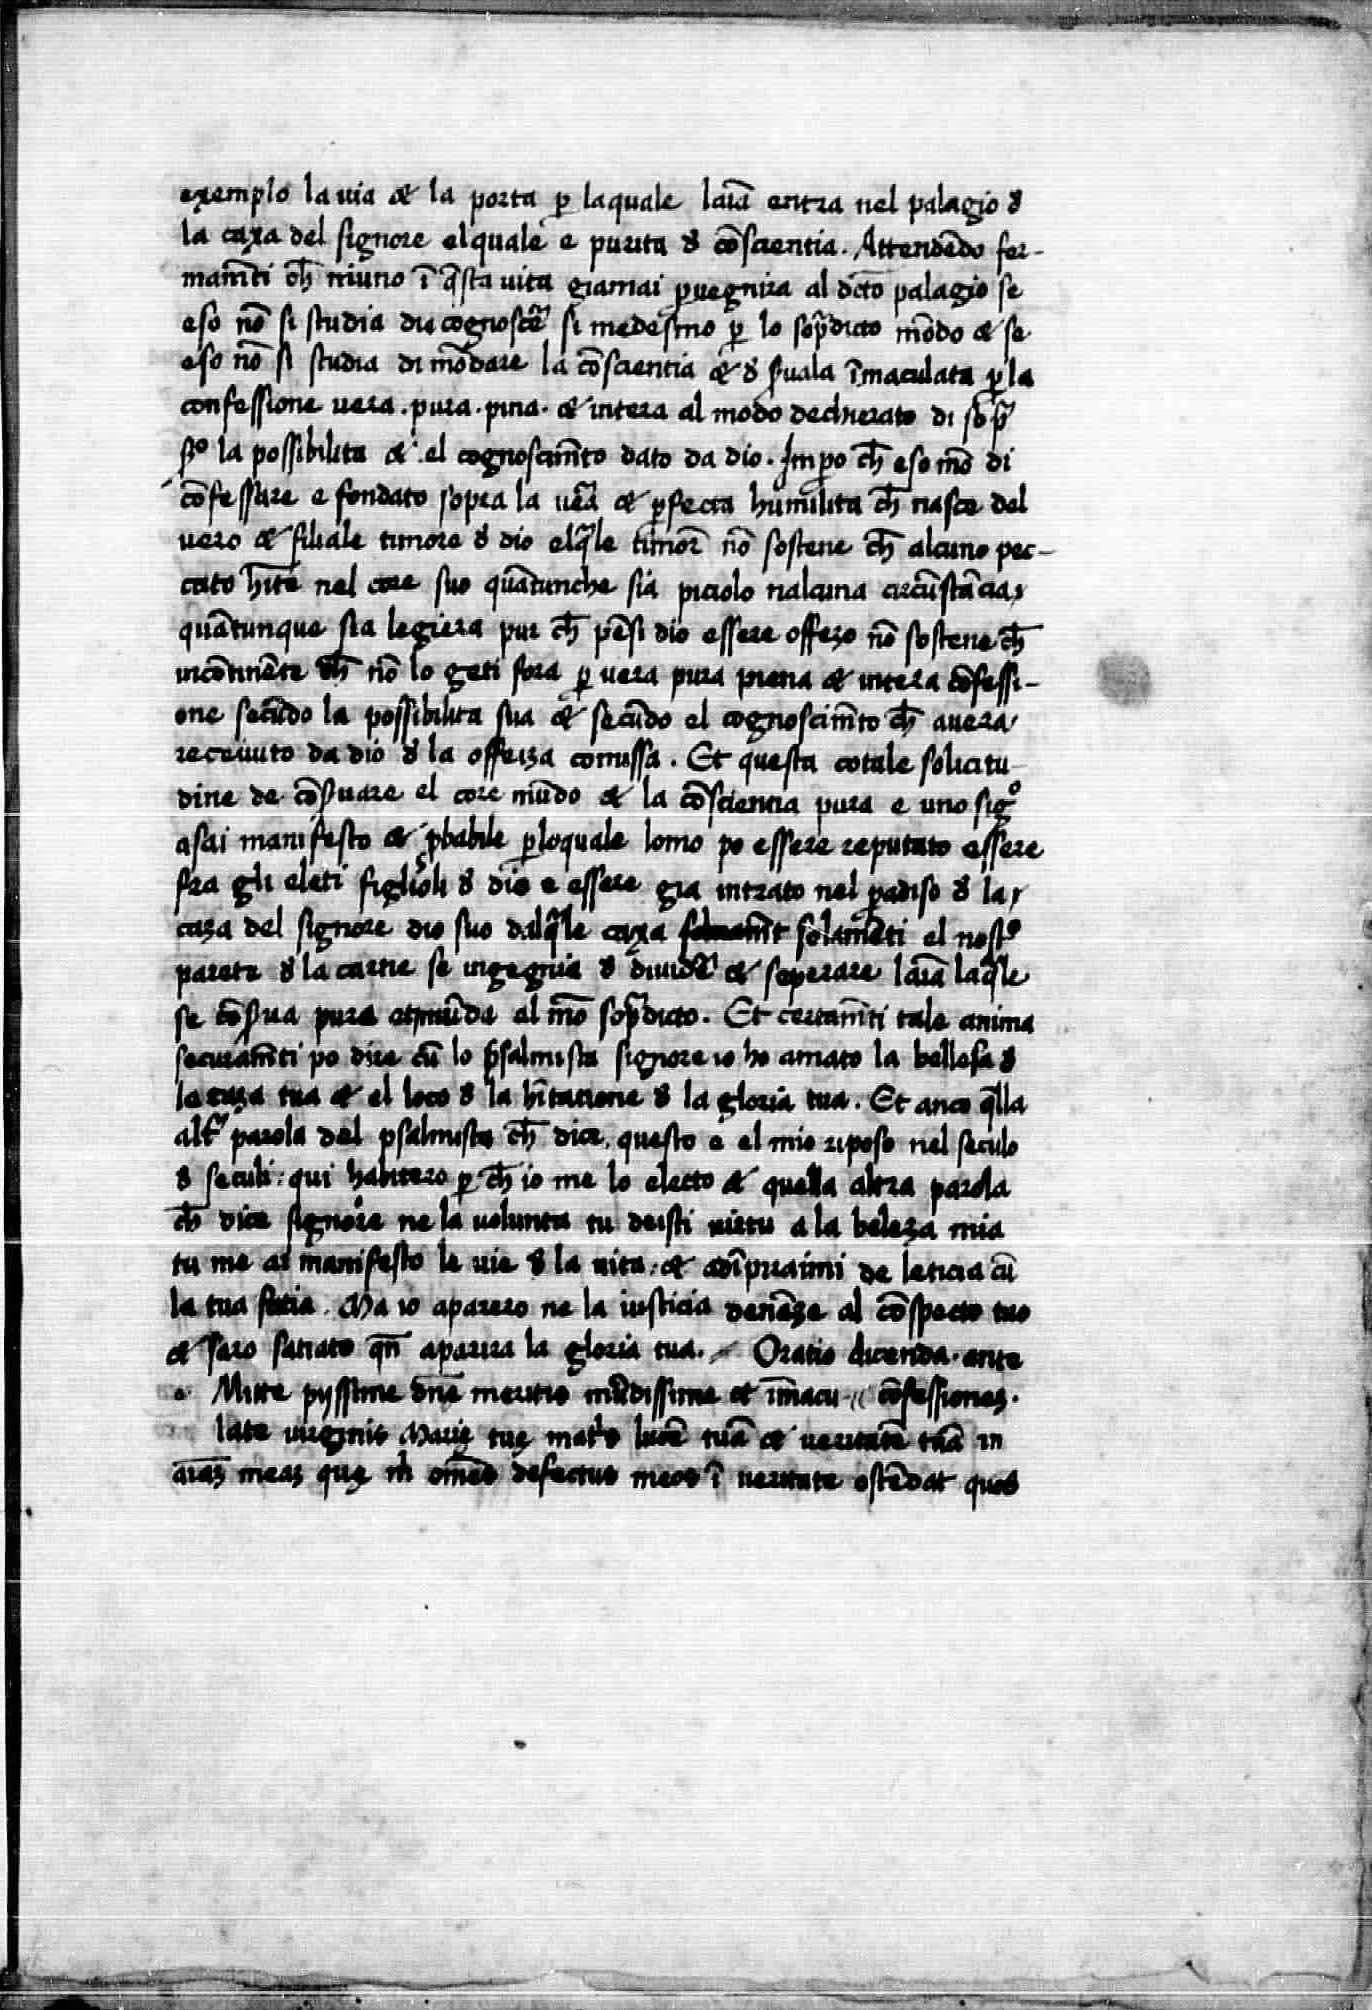 exemplo la uia & la porta ꝑ laquale laĩa entra nel palagio ꝺ
la caxa del signore elquale e purita ꝺ cõscientia. Attendẽdo fer-
mam̃ti ch̃ niuno ĩ q̃sta uita giamai ꝑuegnira al dcõ palagio se
eso nõ si studia di cognoscẽ si medesmo ꝑ lo sop̃dicto mõdo & se
eso nõ si studia di mõdare la cõscientia & ꝺ ſuala ĩmaculata ꝑ la
confessione uera. pura. pina. & intera al modo dechierato di sop̃
ſo la possibilita & el cognoscim̃to dato da dio. Imꝑo ch̃ eso mõ di
cõfessare e fondato sopra la uẽa & ꝑfecta humilita ch̃ nasce del
uero & filiale timore ꝺ dio elq̃le timoř nõ sostene ch̃ alcuno pec-
cato h̃ite nel core suo quãtunche sia piciolo nalcuna circũstãcia
quãtunque sia legiera pur ch̃ pẽsi dio essere offezo nõ sostene ch̃
incõtinẽte ch̃ nõ lo geti fora ꝑ uera pura piena & intera cõfessi-
one secũdo la possibilita sua & secũdo el cognoscim̃to ch̃ auera
receuuto da dio ꝺ la offeza comissa. Et questa cotale solicitu-
dine de cõſuare el core mũdo & la cõscientia pura e uno sigº
asai manifesto & ꝓbabile ꝑloquale lomo po essere reputato essere
fra gli eleti figlioli ꝺ dio e essere gia intrato nel ꝑadiso ꝺ la
caza del signore dio suo dalq̃le caxa solamẽti el nostº
parete ꝺ la carne se ingegnia ꝺ diuidẽ & seperare laĩa laq̃le
se cõſua pura & mũda al mõ sop̃dicto. Et certam̃ti tale anima
securam̃ti po dire cũ lo p̃salmista signore io ho amato la bellesa ꝺ
la caza tua & el loco ꝺ la h̃itatione ꝺ la gloria tua. Et anco q̃lla
alt̃ parola del psalmista ch̃ dice. questo e el mio riposo nel seculo
ꝺ seculi: qui habitero ꝑ ch̃ io me lo electo & quella altra parola
ch̃ dice signore ne la uolunta tu deisti uirtu a la beleza mia
tu me ai manifesto le uie ꝺ la uita. & adĩpiraimi de leticia cũ
la tua facia. Ma io aparero ne la iusticia denãze al cõspecto tuo
& saro satiato qñ aparira la gloria tua. Oratio dicenda. ante
Mitte pyssime dñe meritis mũdissime & ĩmacu- cõfessionez.
late uirginis Marię tuę matris lucẽ tuã & ueritatẽ tuã in
aĩaz meaz quę m̃ om̃es defectus meos ĩ ueritate ostẽdat quos